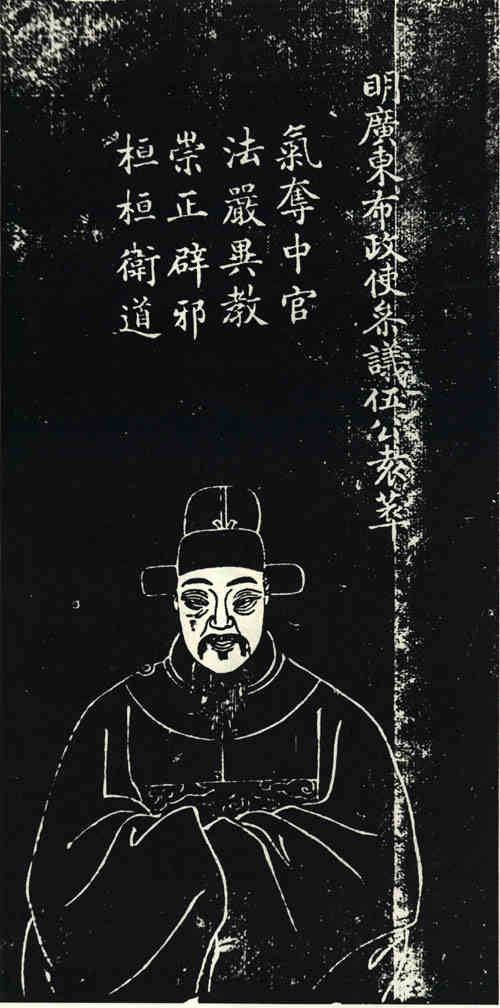 明廣東布政使叅議伍公袁萃
氣奪中官
法嚴異教
崇正辟邪
桓桓衛道